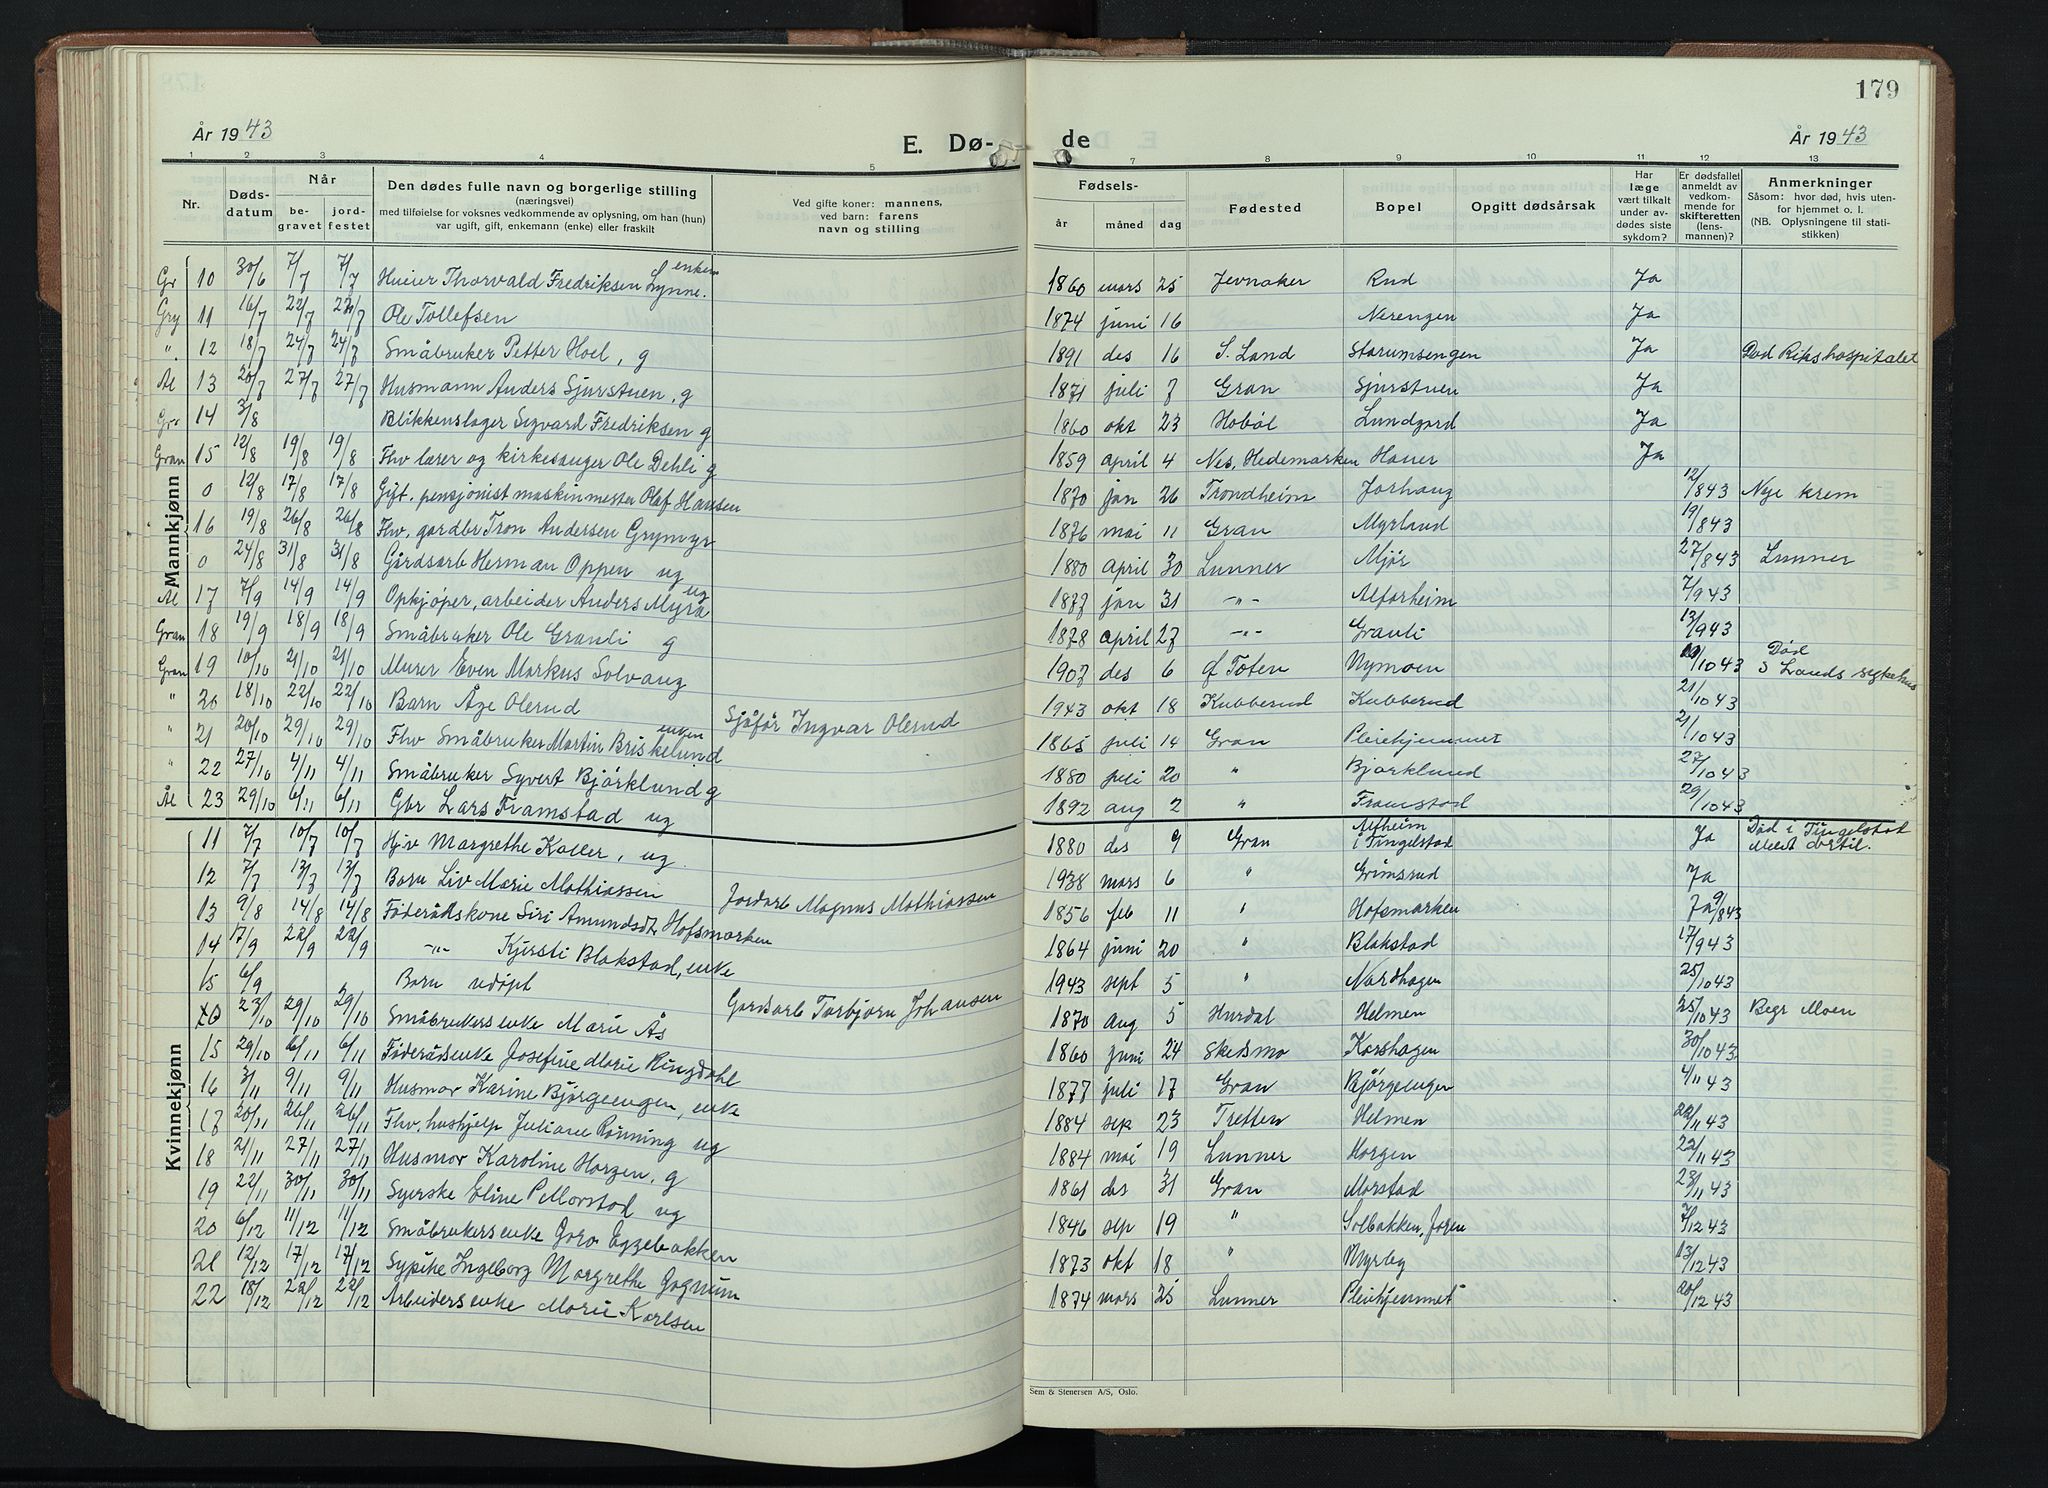 År 1943
E. Dø-
de
År 1943
179
1 2 3 4 5 7 8 9 10 11 12 13
Nr.
Døds-
datum
Når
be-
gravet
jord-
festet
Den dødes fulle navn og borgerlige stilling
(næringsvei)
med tilføielse for voksnes vedkommende av oplysning, om han (hun)
var ugift, gift, enkemann (enke) eller fraskilt
Ved gifte koner: mannens,
ved barn: farens
navn og stilling
Fødsels-
år måned dag
Fødested
Bopel
Opgitt dødsårsak
Har
læge
vært tilkalt
under av-
dødes siste
sykdom?
Er dødsfallet
anmeldt av
vedkom-
mende for
skifteretten
(lens-
mannen)?
Anmerkninger
Såsom: hvor død, hvis uten-
for hjemmet o. l.
(NB. Oplysningene til stati-
stikken)
Mannkjønn
Gr 10 30/6 7/7 7/7 Thorvald Fredriksen Lynne. 1860 mars 25 Jevnaker Rud Ja
Gry 11 16/7 22/7 22/7 Ole Tollefsen 1874 juni 16 Nerengen Ja
". 12 18/7 24/7 24/7 Småbruker Petter Hoel, g 1891 des 16 S. Land Starumsengen Ja Død Rikshospitalet
Al 13 20/7 27/7 27/7 Husmann Anders Sjurstuen, g 1871 juli 7 Gran Sjurstuen Ja
Gr. 14 3/8 Blikkenslager Sigvard Fredriksen g 1860 okt 23 Hobøl Lundgard Ja
Gran 15 12/8 19/8 19/8 Fhv lærer og kirkesanger Ole Dehli g 1859 april 4 Nes, Hedemarken Hauer Ja
0 12/8 17/8 17/8 Gift. pensjonist maskinmester Olaf Hansen 1870 jan 26 Trondheim Jorhaug 12/8 43 Nye krem
16 19/8 26/8 26/8 Fhv. gardbr Tron Andersen Grymyr 1876 mai 11 Gran Myrlund 19/8 43
0 24/8 31/8 31/8 Gårdsarb Herman Oppen ug 1880 april 30 Lunner Mjør 27/8 43 Lunner
Al 17 7/9 14/9 14/9 Opkjøper, arbeider Anders Myra ug 1877 jan 31 -"- Alfarheim 7/9 43
Gran 18 19/9 18/9 18/9 Småbruker Ole Granli g 1878 april 27 -"- Granli 13/9 43
Gran 19 10/10 21/10 21/10 Murer Even Markus Solvang 1907 des 6 Toten Nymoen 10 43 Død S Lands sykehus
" 20 18/10 22/10 22/10 Barn Åge Olerud Sjåfør Ingvar Olerud 1943 okt 18 Kubberud Kubberud 21/10 43
" 21 20/10 29/10 29/10 Fhv Småbruker Martin Briskelund enkem 1865 juli 14 Gran Pleiehjemmet 21/10 43
" 22 27/10 4/11 4/11 Småbruker Syvert Bjørklund g 1880 juli 20 " Bjørklund 27/10 43
Ål 23 29/10 6/11 6/11 Gbr Lars Framstad ug 1892 aug 2 " Framstad 29/10 43
Kvinnekjønn
11 7/7 10/7 10/7 Hjv Margrethe Koller, ug. 1880 des 9 Gran Alfheim i Tingelstad Ja Død i Tingelstad Meldt dertil.
12 7/7 13/7 13/7 Barn Liv Marie Mathiassen Jordarb Magnus Mathiassen 1938 mars 6 " Grimsrud Ja
13 9/8 14/8 14/8 Føderådskone Siri Amundsdt Hofsmarken 1856 feb 11 " Hofsmarken Ja 9/8 43
14 17/9 22/9 22/9 -"- Kjersti Blakstad, enke 1864 juni 20 " Blakstad 17/9 43
15 6/9 Barn udøpt Gardsarb Torbjørn Johansen 1943 sept 5 " Nordhagen 25/10 43
23/10 29/10 29/10 Småbrukersenke Marie Ås 1870 aug 5 Hurdal Helmen 25/10 43 Begr Moen
15 29/10 6/11 6/11 Føderådsenke Josefine Marie Ringdahl 1860 juni 24 Skedsmo Korshagen 30/10 43
16 3/11 9/11 9/11 Husmor Karine Bjørgeengen, enke 1877 juli 17 Gran Bjørgeengen 4/11 43
17 20/11 26/11 26/11 Fhv. hushjelp Juliane Rønning ug 1884 sep 23 Tretten Helmen 22/11 43
18 21/11 27/11 27/11 Husmor Karoline Horgen, g 1884 mai 19 Lunner Horgen 22/11 43
19 22/11 30/11 30/11 Syerske Eline P. Morstad ug 1861 des 31 Gran Morstad 23/11 43
20 6/12 11/12 11/12 Småbrukersenke Goro Eggebakken 1846 sep 19 " Solbakken, Jaren 7/12 43
21 12/12 17/12 17/12 Sypike Ingeborg Margrethe Gagnum 1873 okt 18 " Nyrby 13/12 43
22 18/12 22/12 22/12 Arbeidersenke Marie Karlsen 1874 mars 25 Lunner Pleiehjemmet 20/12 43
Sem & Stenersen A/S, Oslo.